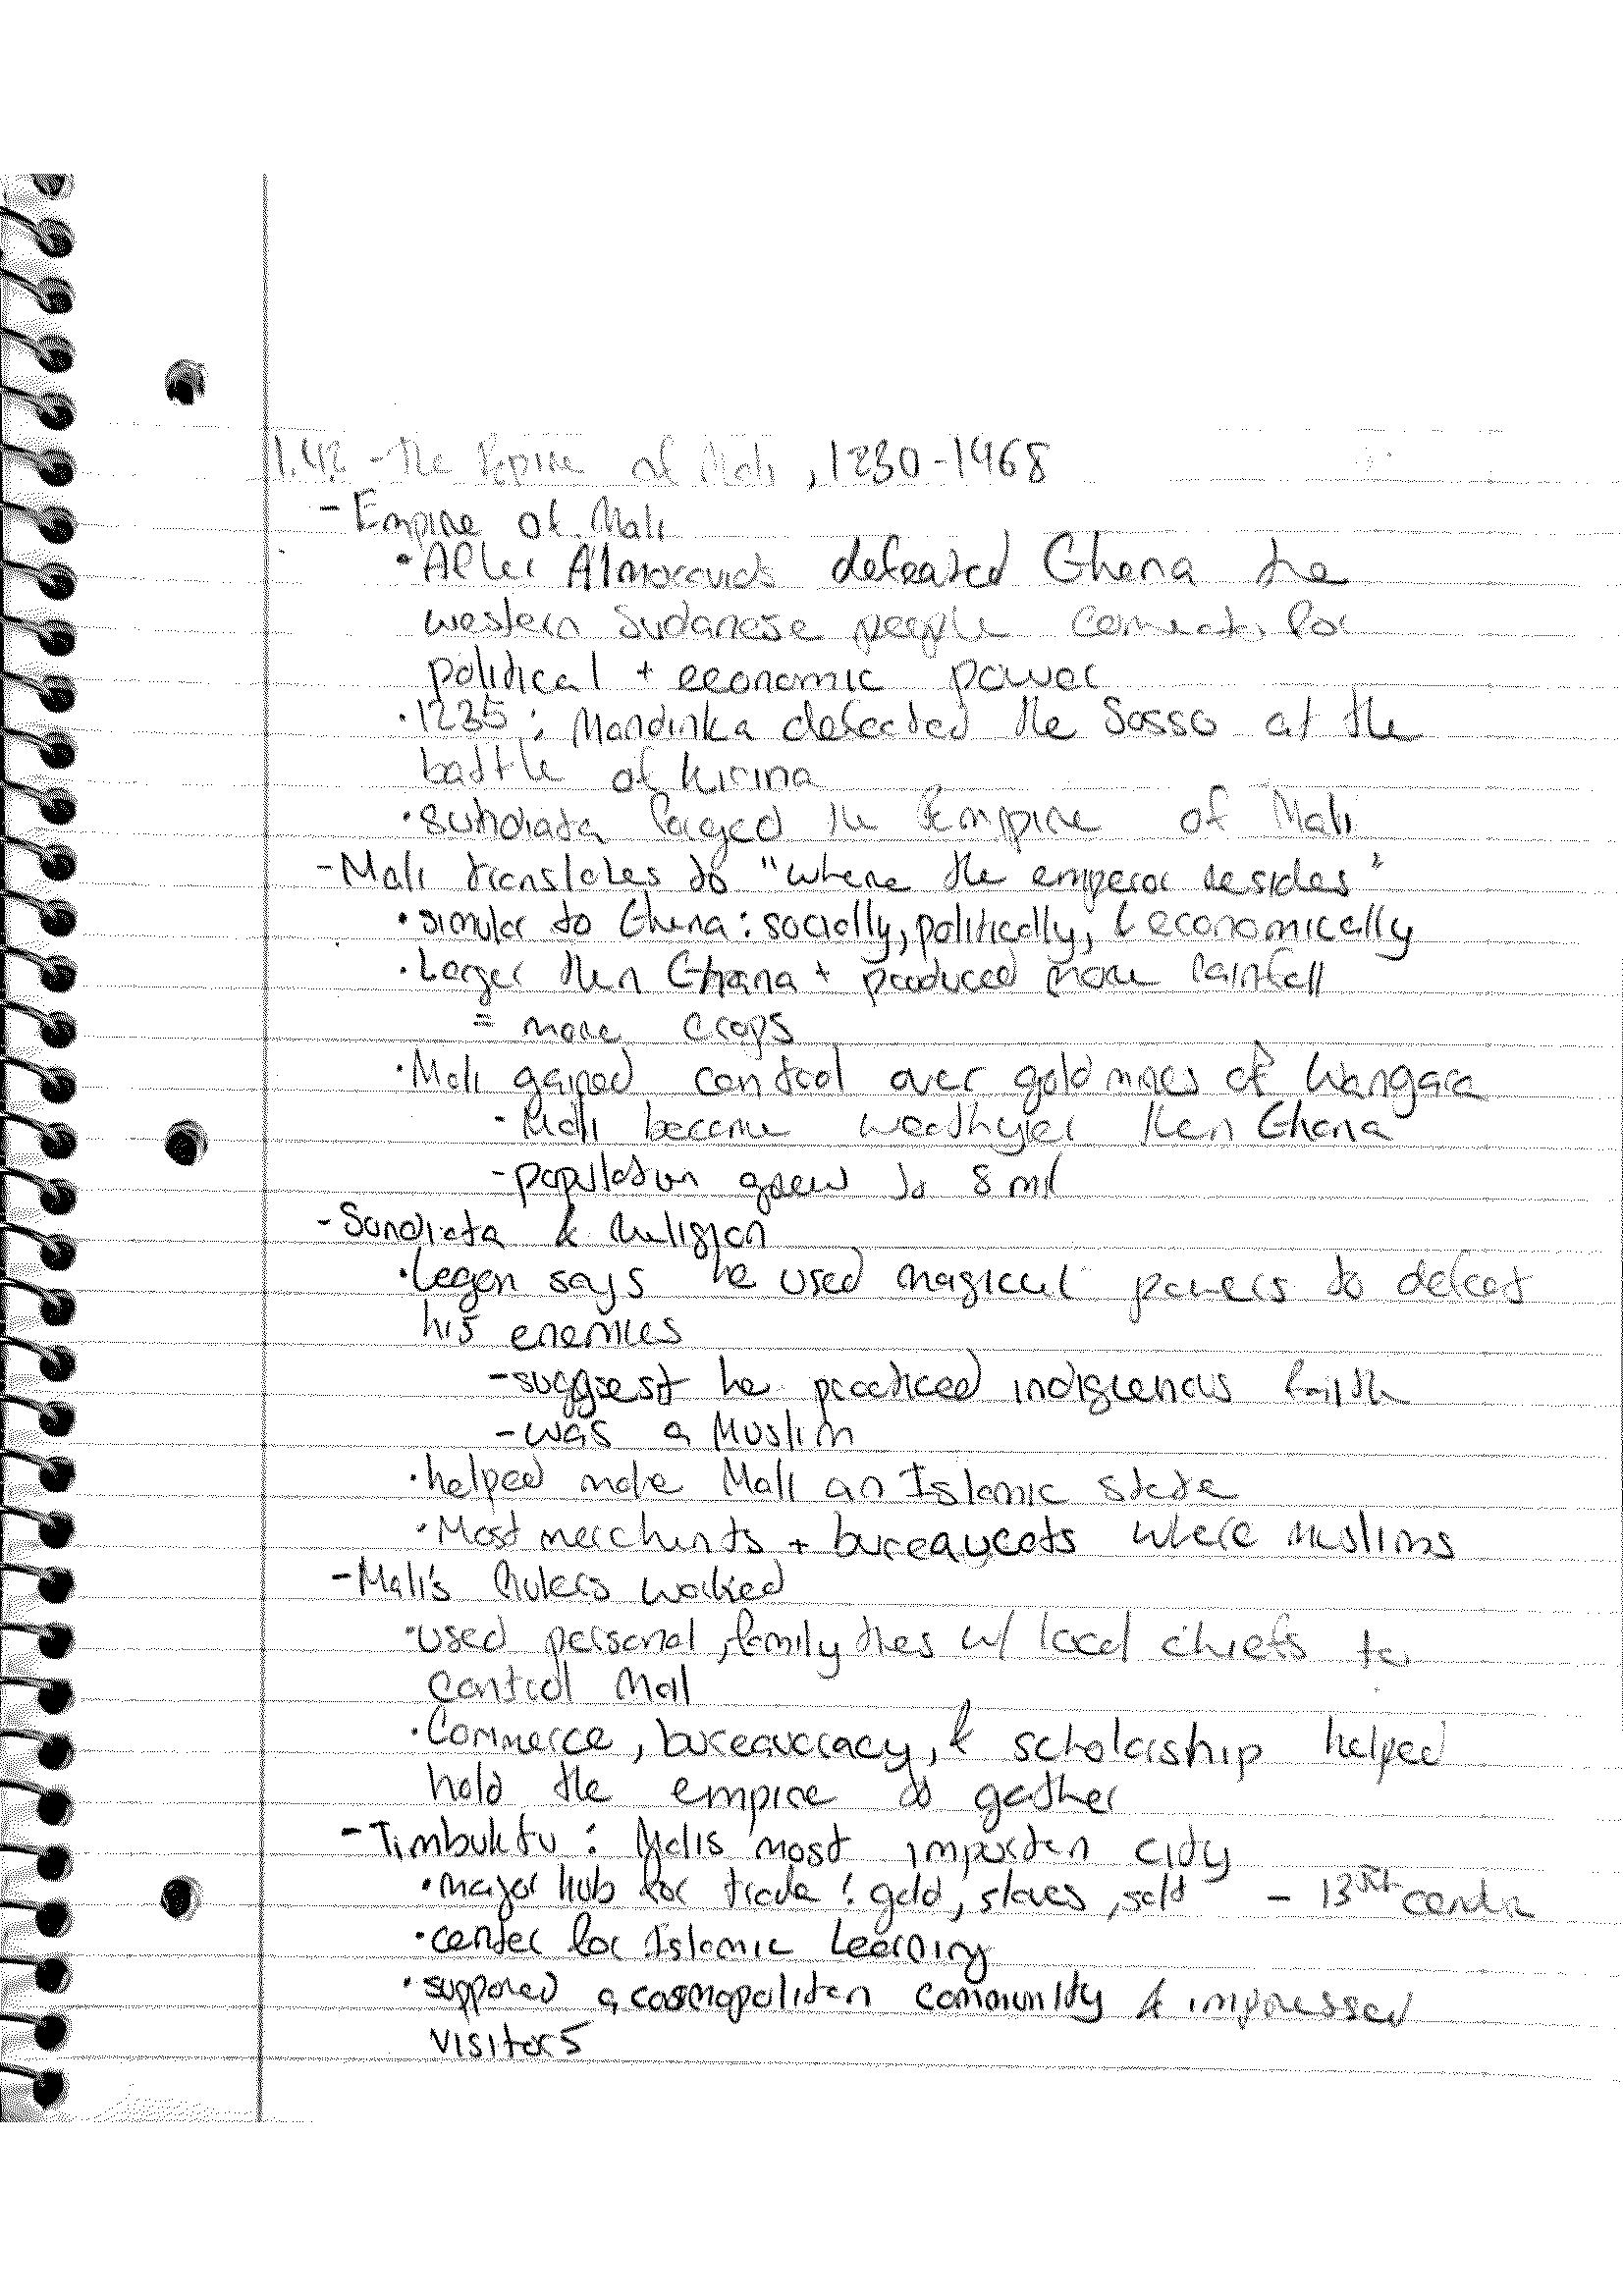 1.42 - The Empire of Mali, 1230-1468
- Empire of Mali
• After Almoravids defeated Ghana the
western Sudanese people for
political + economic power
• 1235: Mandinka defeated the Sosso at the
battle of Kirina
• Sundiata forged the Empire of Mali
- Mali translates to "where the emperor resides"
• similar to Ghana: socially, politically, & economically
• Larger then Ghana + produced more rainfall
= more crops
• Mali gained control over gold mines of Wangara
- Mali became wealthyier then Ghana
- population grew to 8 mil
- Sundiata & Religion
• Legen says he used magical powers to defeat
his enemies
- suggest he practiced indigienous faith
- was a Muslim
• helped make Mali an Islamic state
• Most merchants + bureaucats where muslims
- Mali's Rulers worked
• used personal, family ties w/ local chiefs to
control Mali
• Commerce, bureaucracy, & scholarship helped
hold the empire to gether
- Timbuktu: Malis most importen city
• major hub for trade: gold, slaves, salt - 13th
• center for Islamic Learning
• suppored a cosmopoliten community & impressed
visitors